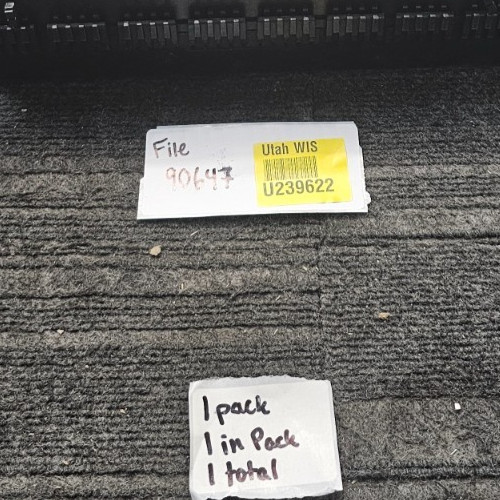 File
90647
Utah WIS
U239622
1 pack
1 in Pack
1 total